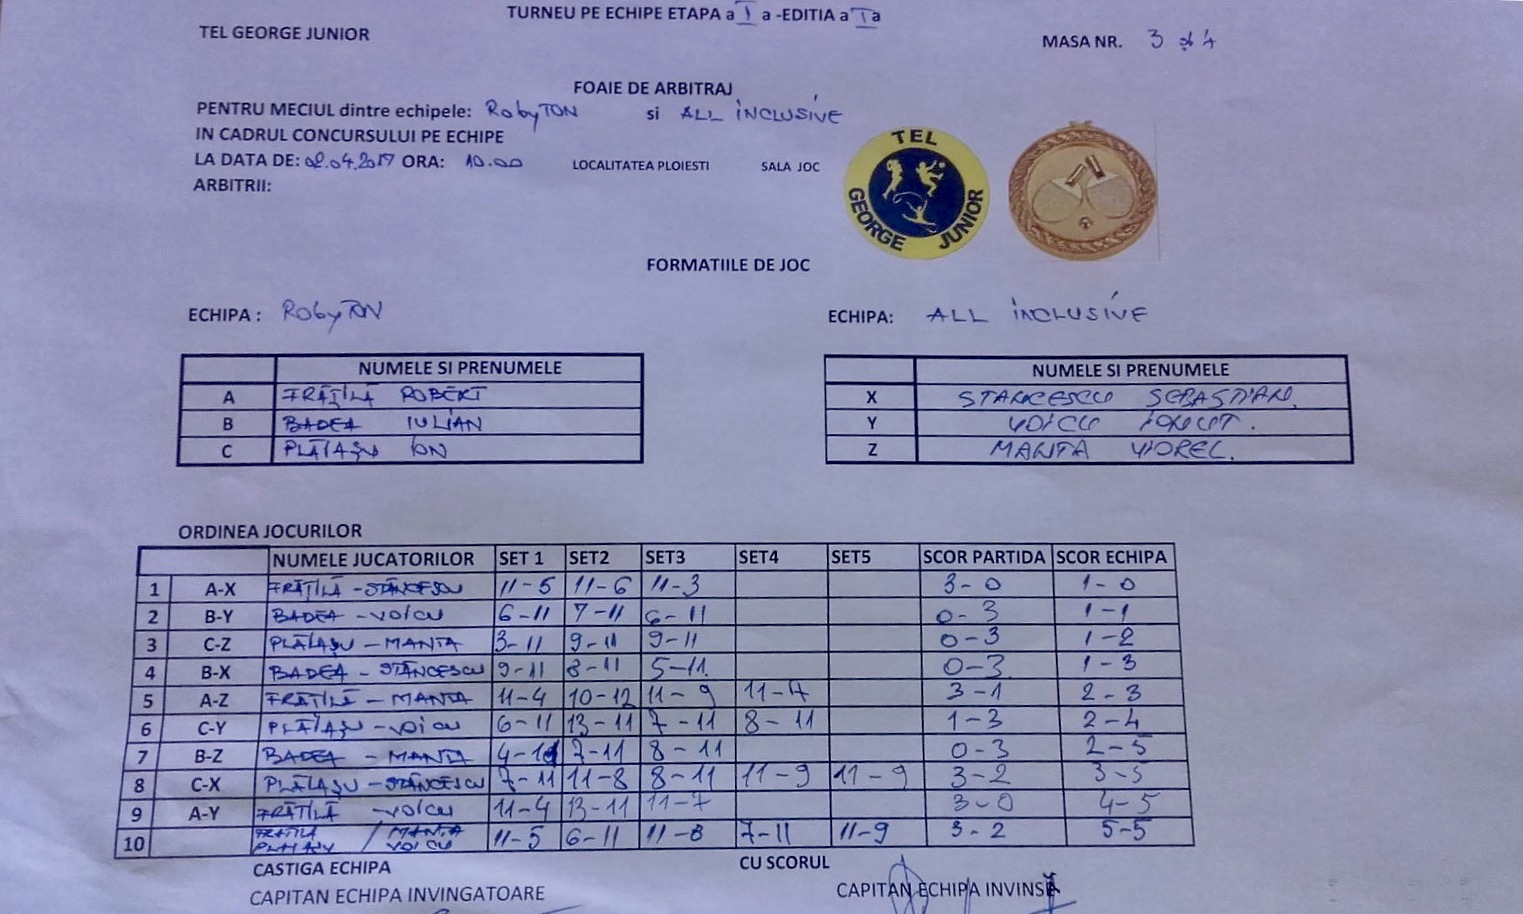 TURNEU PE ECHIPE ETAPA a I a -EDITIA a I a
TEL GEORGE JUNIOR
MASA NR. 3 și 4
FOAIE DE ARBITRAJ
PENTRU MECIUL dintre echipele: RobyTON si ALL INCLUSIVE
IN CADRUL CONCURSULUI PE ECHIPE
LA DATA DE: 02.04.2017 ORA: 10.00 LOCALITATEA PLOIESTI SALA JOC
ARBITRII:
TEL
GEORGE JUNIOR
FORMATIILE DE JOC
ECHIPA : RobyTON ECHIPA: ALL INCLUSIVE
NUMELE SI PRENUMELE NUMELE SI PRENUMELE
A FRĂȚILĂ ROBERT X STANCESCU SEBASTIAN
B BADEA IULIAN Y VOICU IONUT.
C PLĂIAȘU ION Z MANTA VIOREL.
ORDINEA JOCURILOR
NUMELE JUCATORILOR SET 1 SET2 SET3 SET4 SET5 SCOR PARTIDA SCOR ECHIPA
1 A-X FRĂȚILĂ - STĂNCESCU 11-5 11-6 11-3 3-0 1-0
2 B-Y BADEA - VOICU 6-11 7-11 6-11 0-3 1-1
3 C-Z PLĂIAȘU - MANTA 3-11 9-11 9-11 0-3 1-2
4 B-X BADEA - STĂNCESCU 9-11 8-11 5-11. 0-3 1-3
5 A-Z FRĂȚILĂ - MANTA 11-4 10-12 11-9 11-4 3-1 2-3
6 C-Y PLĂIAȘU - VOICU 6-11 13-11 7-11 8-11 1-3 2-4
7 B-Z BADEA - MANTA 4-11 7-11 8-11 0-3 2-5
8 C-X PLĂIAȘU - STĂNCESCU 7-11 11-8 8-11 11-9 11-9 3-2 3-5
9 A-Y FRĂȚILĂ - VOICU 11-4 13-11 11-7 3-0 4-5
10 FRĂȚILĂ / MANTA 11-5 6-11 11-8 7-11 11-9 3-2 5-5
PLĂIAȘU VOICU
CASTIGA ECHIPA CU SCORUL
CAPITAN ECHIPA INVINGATOARE CAPITAN ECHIPA INVINSĂ